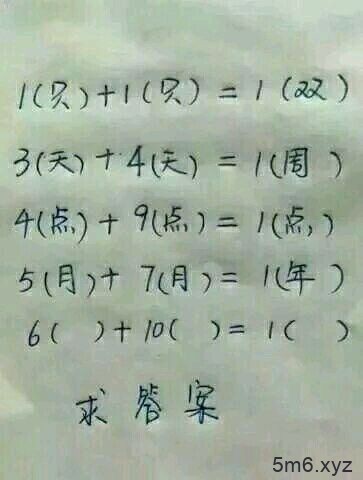 1(只)+1(只)=1(双)
3(天)+4(天)=1(周)
4(点)+9(点)=1(点)
5(月)+7(月)=1(年)
6( )+10( )=1( )
求答案
5m6.xyz